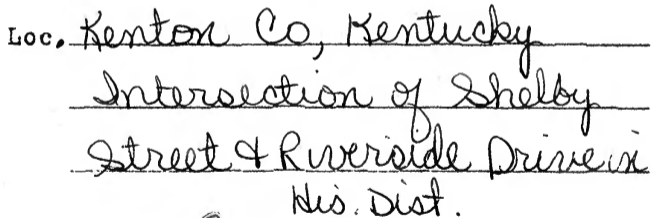 Loc. Kenton Co, Kentucky
Intersection of Shelby
Street & Riverside Drive in
His. Dist.